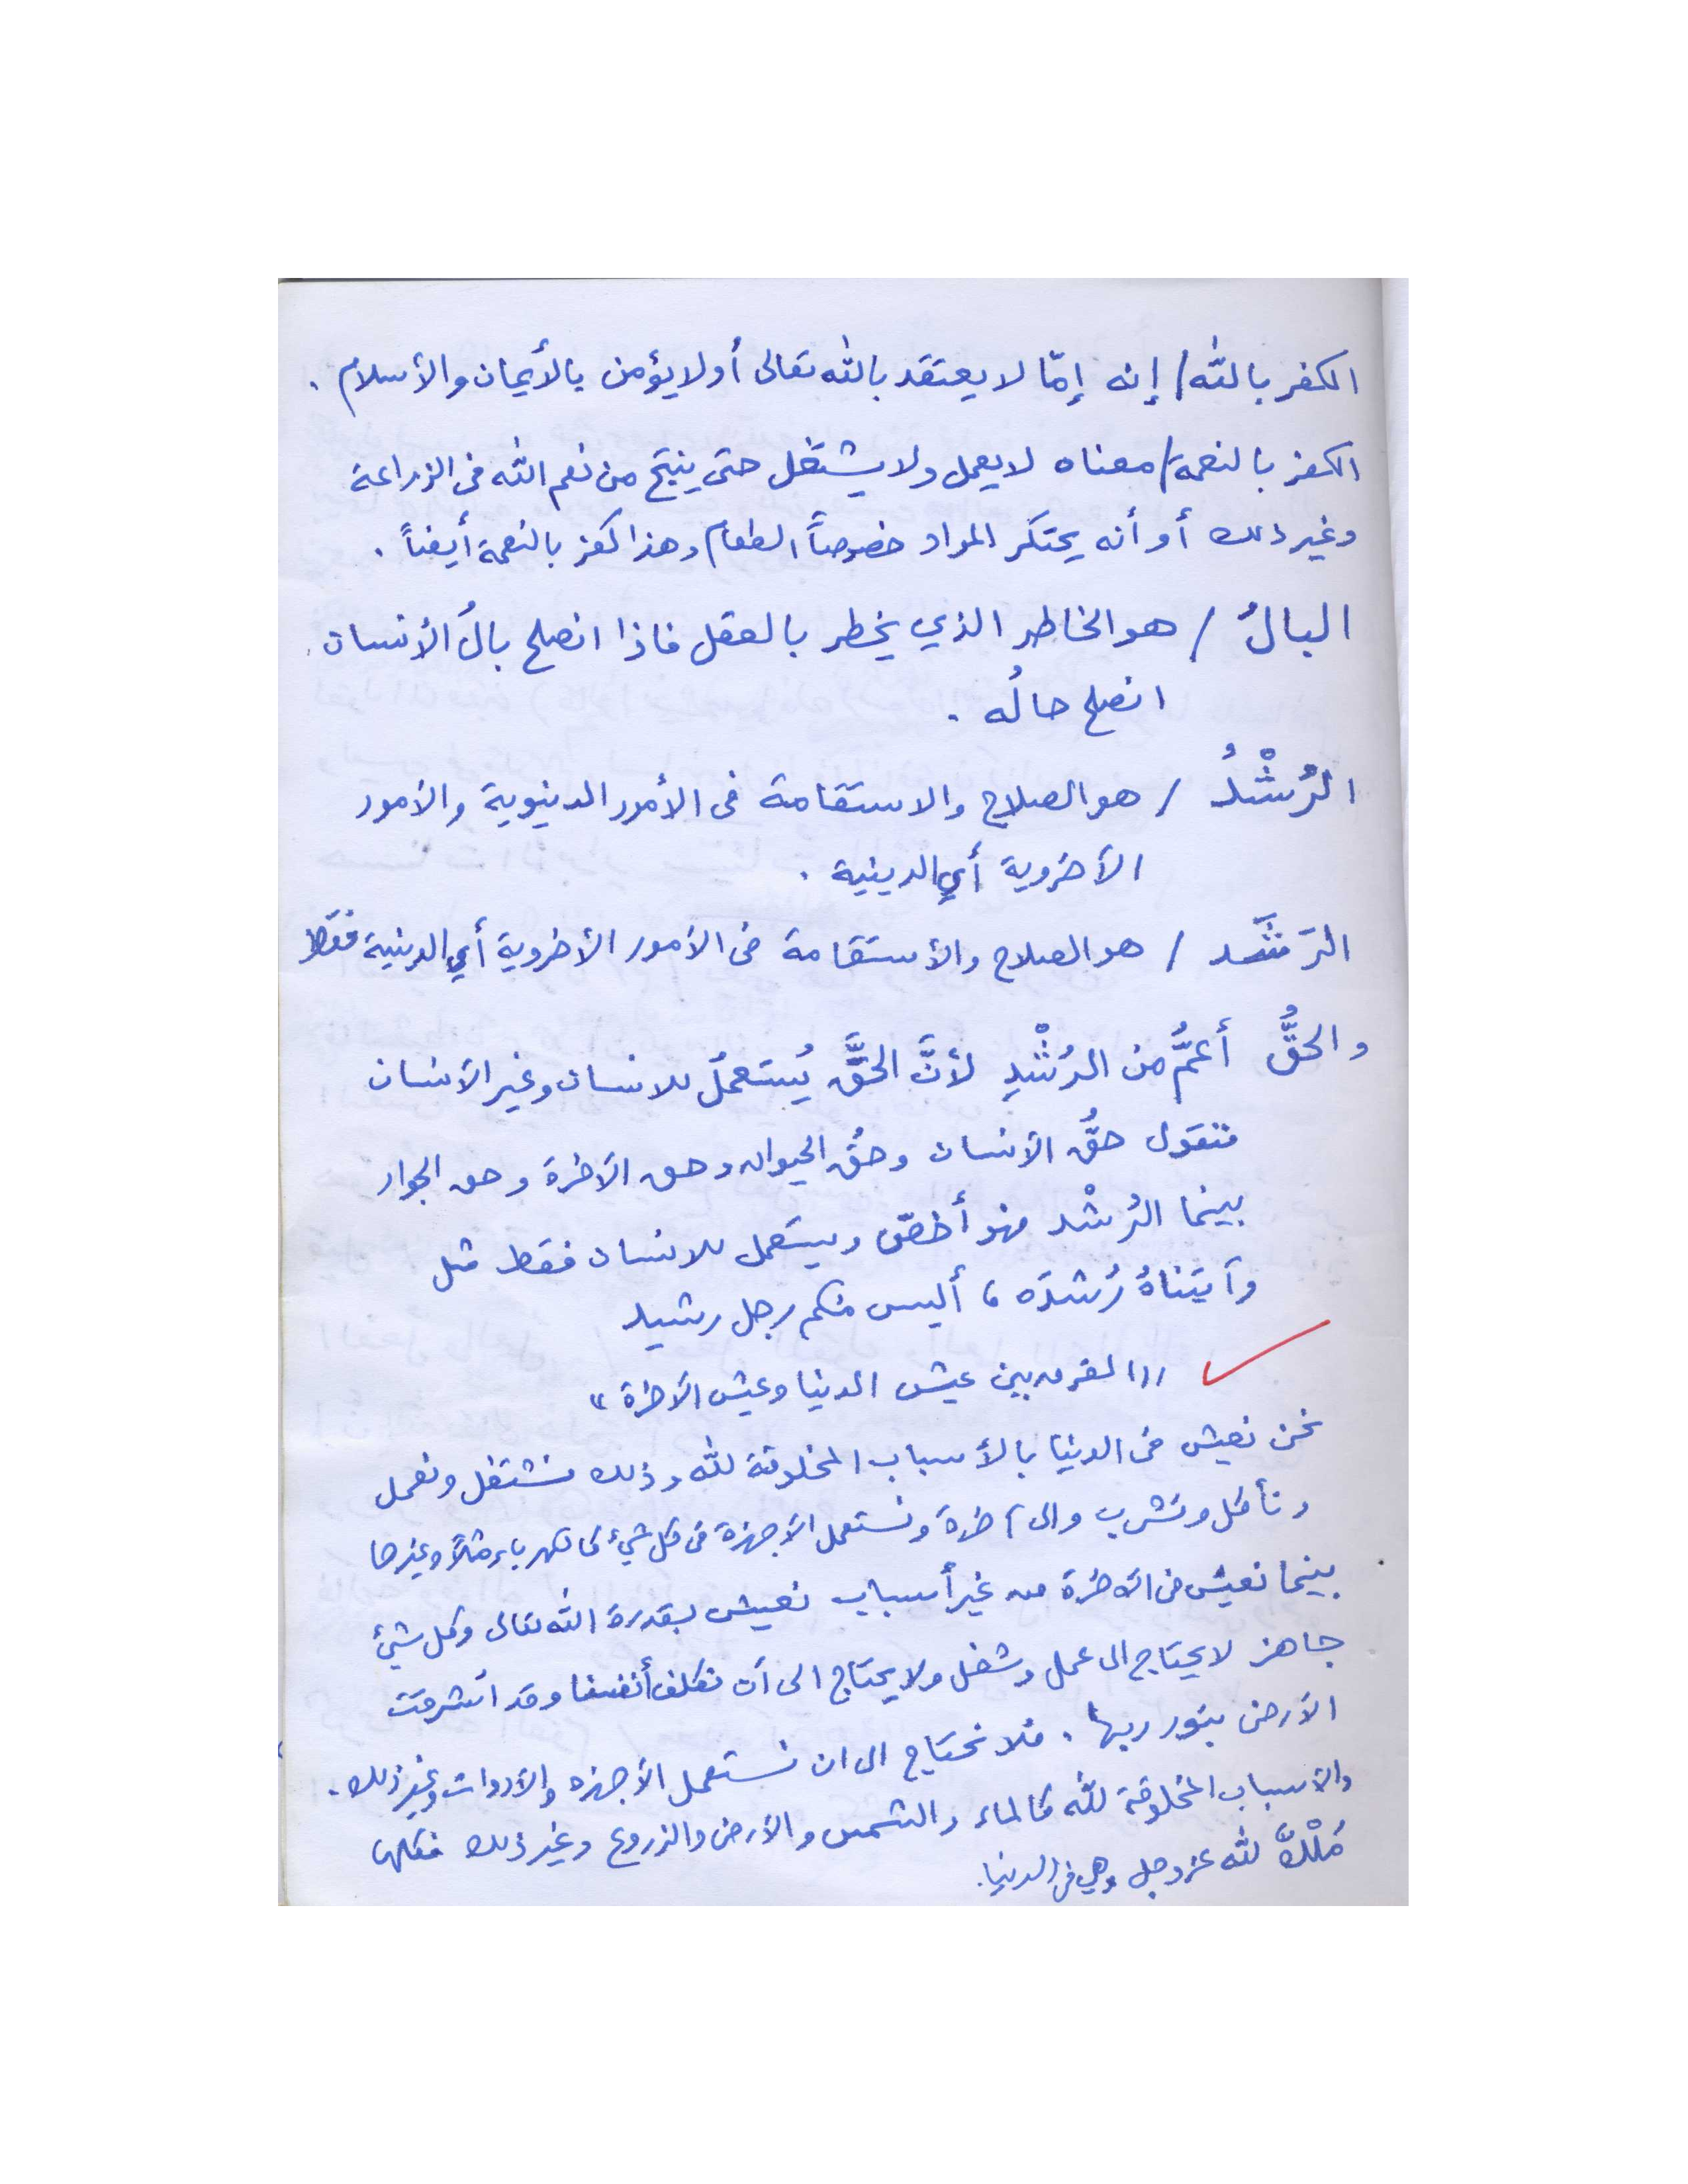 الكفر بالله/ إنه إمّا لا يعتقد بالله تعالى أو لا يؤمن بالأيمان والأسلام .
الكفر بالنعمة/ معناه لا يعمل ولا يشتغل حتى ينتج من نعم الله في الزراعة
وغير ذلك أو أنه يحتكر المواد خصوصاً الطعام وهذا كفر بالنعمة أيضاً .
البالُ / هو الخاطر الذي يخطر بالعقل فاذا انصلح بالُ الأنسان
انصلح حالُه .
الرُشْدُ / هو الصلاح والاستقامة في الأمور الدينوية والأمور
الأخروية أي الدينية .
الرَشَد / هو الصلاح والأستقامة في الأمور الأخروية أي الدينية فقط
والحقُّ أعمُّ من الرُشْدِ لأنَّ الحقَّ يُستعملُ للانسان وغير الأنسان
فنقول حقُّ الأنسان وحقُ الحيوان وحق الآخرة وحق الجوار
بينما الرُشْد فهو أخصّ ويستعمل للانسان فقط مثل
وآتيناهُ رُشدَه ، أليس منكم رجل رشيد
((الفرق بين عيش الدنيا وعيش الآخرة))
نحن نعيش في الدنيا بالأسباب المخلوقة لله وذلك نشتغل ونعمل
ونأكل ونشرب والى آخره ونستعمل الأجهزة في كل شيء كالكهرباء مثلاً وغيرها
بينما نعيش في الآخرة من غير أسباب نعيش بقدرة الله تعالى وكل شيئ
جاهز لا يحتاج الى عمل وشغل ولا يحتاج الى أن نكلف أنفسنا وقد اشرقت
الأرض بنور ربها . فلا نحتاج الى ان نستعمل الأجهزه والأدوات وغير ذلك .
والأسباب المخلوقة لله كالماء والشمس والأرض والزروع وغير ذلك فكلها
مُلْكٌ لله عز وجل وهي في الدنيا.